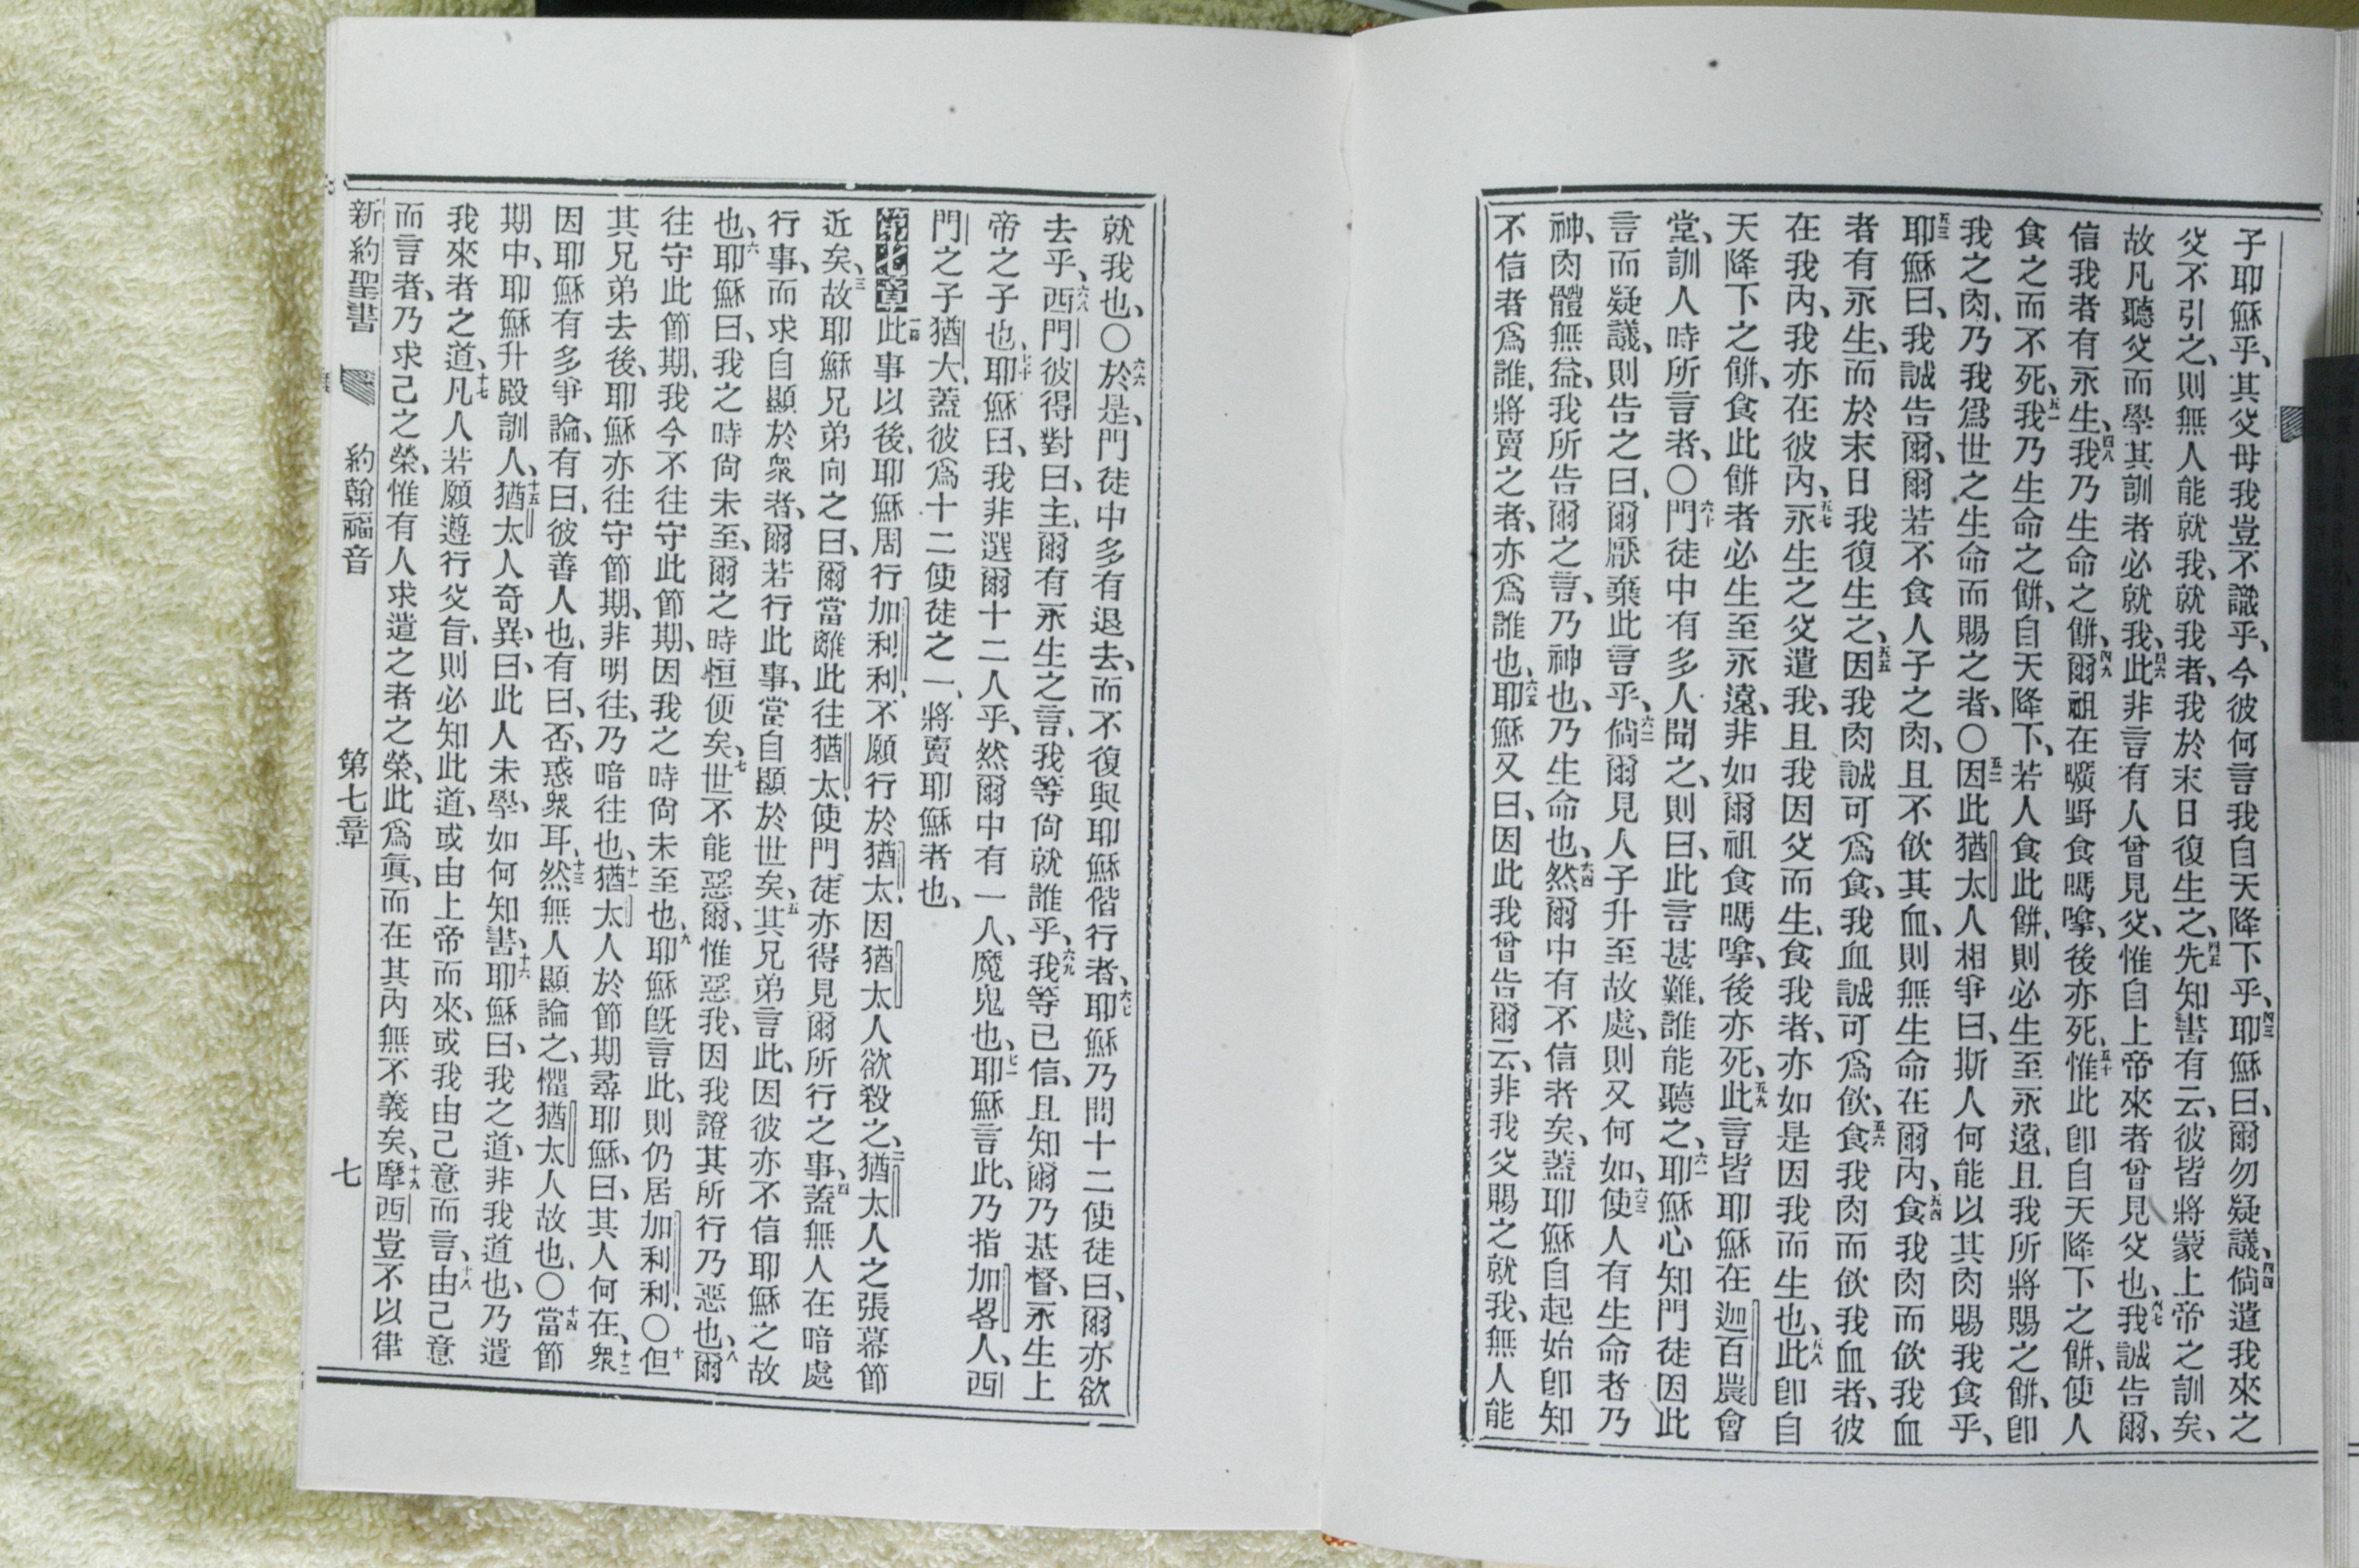 子耶穌乎、其父母我豈不識乎、今彼何言我自天降下乎、四三耶穌曰、爾勿疑議、四四倘遣我來之
父不引之、則無人能就我、就我者、我於末日復生之、四五先知書有云、彼皆將蒙上帝之訓矣、
故凡聽父而學其訓者必就我、四六此非言有人曾見父、惟自上帝來者曾見父也、四七我誠告爾、
信我者有永生、四八我乃生命之餅、四九爾祖在曠野食嗎嗱、後亦死、五十惟此卽自天降下之餅、使人
食之而不死、五一我乃生命之餅、自天降下、若人食此餅、則必生至永遠、且我所將賜之餅、卽
我之肉、乃我爲世之生命而賜之者、〇五二因此猶太人相爭曰、斯人何能以其肉賜我食乎、
五三耶穌曰、我誠告爾、爾若不食人子之肉、且不飲其血、則無生命在爾內、五四食我肉而飲我血
者有永生、而於末日我復生之、五五因我肉誠可爲食、我血誠可爲飲、五六食我肉而飲我血者、彼
在我內、我亦在彼內、五七永生之父遣我、且我因父而生、食我者、亦如是因我而生也、五八此卽自
天降下之餅、食此餅者必生至永遠、非如爾祖食嗎嗱、後亦死、五九此言皆耶穌在迦百農會
堂、訓人時所言者、〇六十門徒中有多人聞之、則曰、此言甚難、誰能聽之、六一耶穌心知門徒因此
言而疑議、則告之曰、爾厭棄此言乎、六二倘爾見人子升至故處、則又何如、六三使人有生命者乃
神、肉體無益、我所告爾之言、乃神也、乃生命也、六四然爾中有不信者矣、蓋耶穌自起始卽知
不信者爲誰、將賣之者、亦爲誰也、六五耶穌又曰、因此我曾告爾云、非我父賜之就我、無人能
就我也、〇六六於是、門徒中多有退去、而不復與耶穌偕行者、六七耶穌乃問十二使徒曰、爾亦欲
去乎、六八西門彼得對曰、主、爾有永生之言、我等尙就誰乎、六九我等已信、且知爾乃基督、永生上
帝之子也、七十耶穌曰、我非選爾十二人乎、然爾中有一人、魔鬼也、七一耶穌言此、乃指加畧人、西
門之子猶大、蓋彼爲十二使徒之一、將賣耶穌者也、
第七章 一節此事以後、耶穌周行加利利、不願行於猶太、因猶太人欲殺之、二猶太人之張幕節
近矣、三故耶穌兄弟向之曰、爾當離此往猶太、使門徒亦得見爾所行之事、四蓋無人在暗處
行事、而求自顯於衆者、爾若行此事、當自顯於世矣、五其兄弟言此、因彼亦不信耶穌之故
也、六耶穌曰、我之時尙未至、爾之時恒便矣、七世不能惡爾、惟惡我、因我證其所行乃惡也、八爾
往守此節期、我今不往守此節期、因我之時尙未至也、九耶穌旣言此、則仍居加利利、〇十但
其兄弟去後、耶穌亦往守節期、非明往、乃暗往也、十一猶太人於節期尋耶穌、曰、其人何在、十二衆
因耶穌有多爭論、有曰、彼善人也、有曰、否、惑衆耳、十三然無人顯論之、懼猶太人故也、〇十四當節
期中、耶穌升殿訓人、十五猶太人奇異、曰、此人未學、如何知書、十六耶穌曰、我之道、非我道也、乃遣
我來者之道、十七凡人若願遵行父旨、則必知此道、或由上帝而來、或我由己意而言、十八由己意
而言者、乃求己之榮、惟有人求遣之者之榮、此爲眞、而在其內無不義矣、十九摩西豈不以律
新約聖書 約翰福音 第七章 七